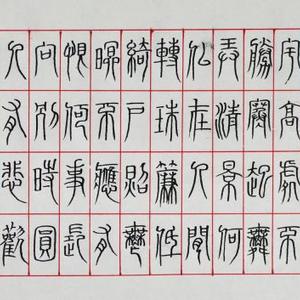 宇高處不
勝寒起舞
弄清景何
似在人間
轉珠簾低
綺戶照無
眠不應有
恨何事長
向別時圓
人有悲歡